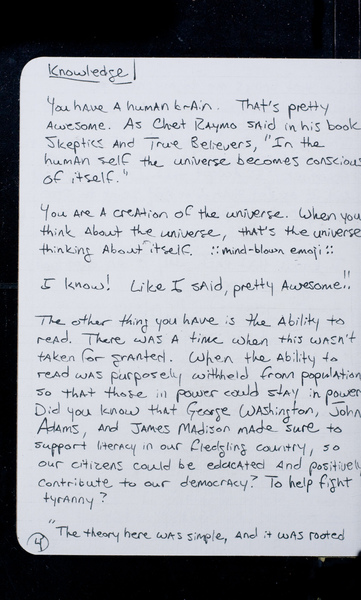 Knowledge
You have a human brain. That's pretty
awesome. As Chet Raymo said in his book
Skeptics and True Believers, "In the
human self the universe becomes conscious
of itself."
You are a creation of the universe. When you
think about the universe, that's the universe
thinking about itself. ::mind-blown emoji::
I know! Like I said, pretty awesome!!
The other thing you have is the ability to
read. There was a time when this wasn't
taken for granted. When the ability to
read was purposely withheld from population
so that those in power could stay in power
Did you know that George Washington, John
Adams, and James Madison made sure to
support literacy in our fledgling country, so
our citizens could be educated and positively
contribute to our democracy? To help fight
tyranny?
"The theory here was simple, and it was rooted
4